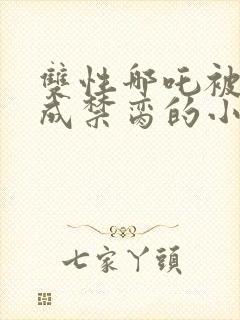 雙性哪吒被
成禁脔的小
七家丫頭